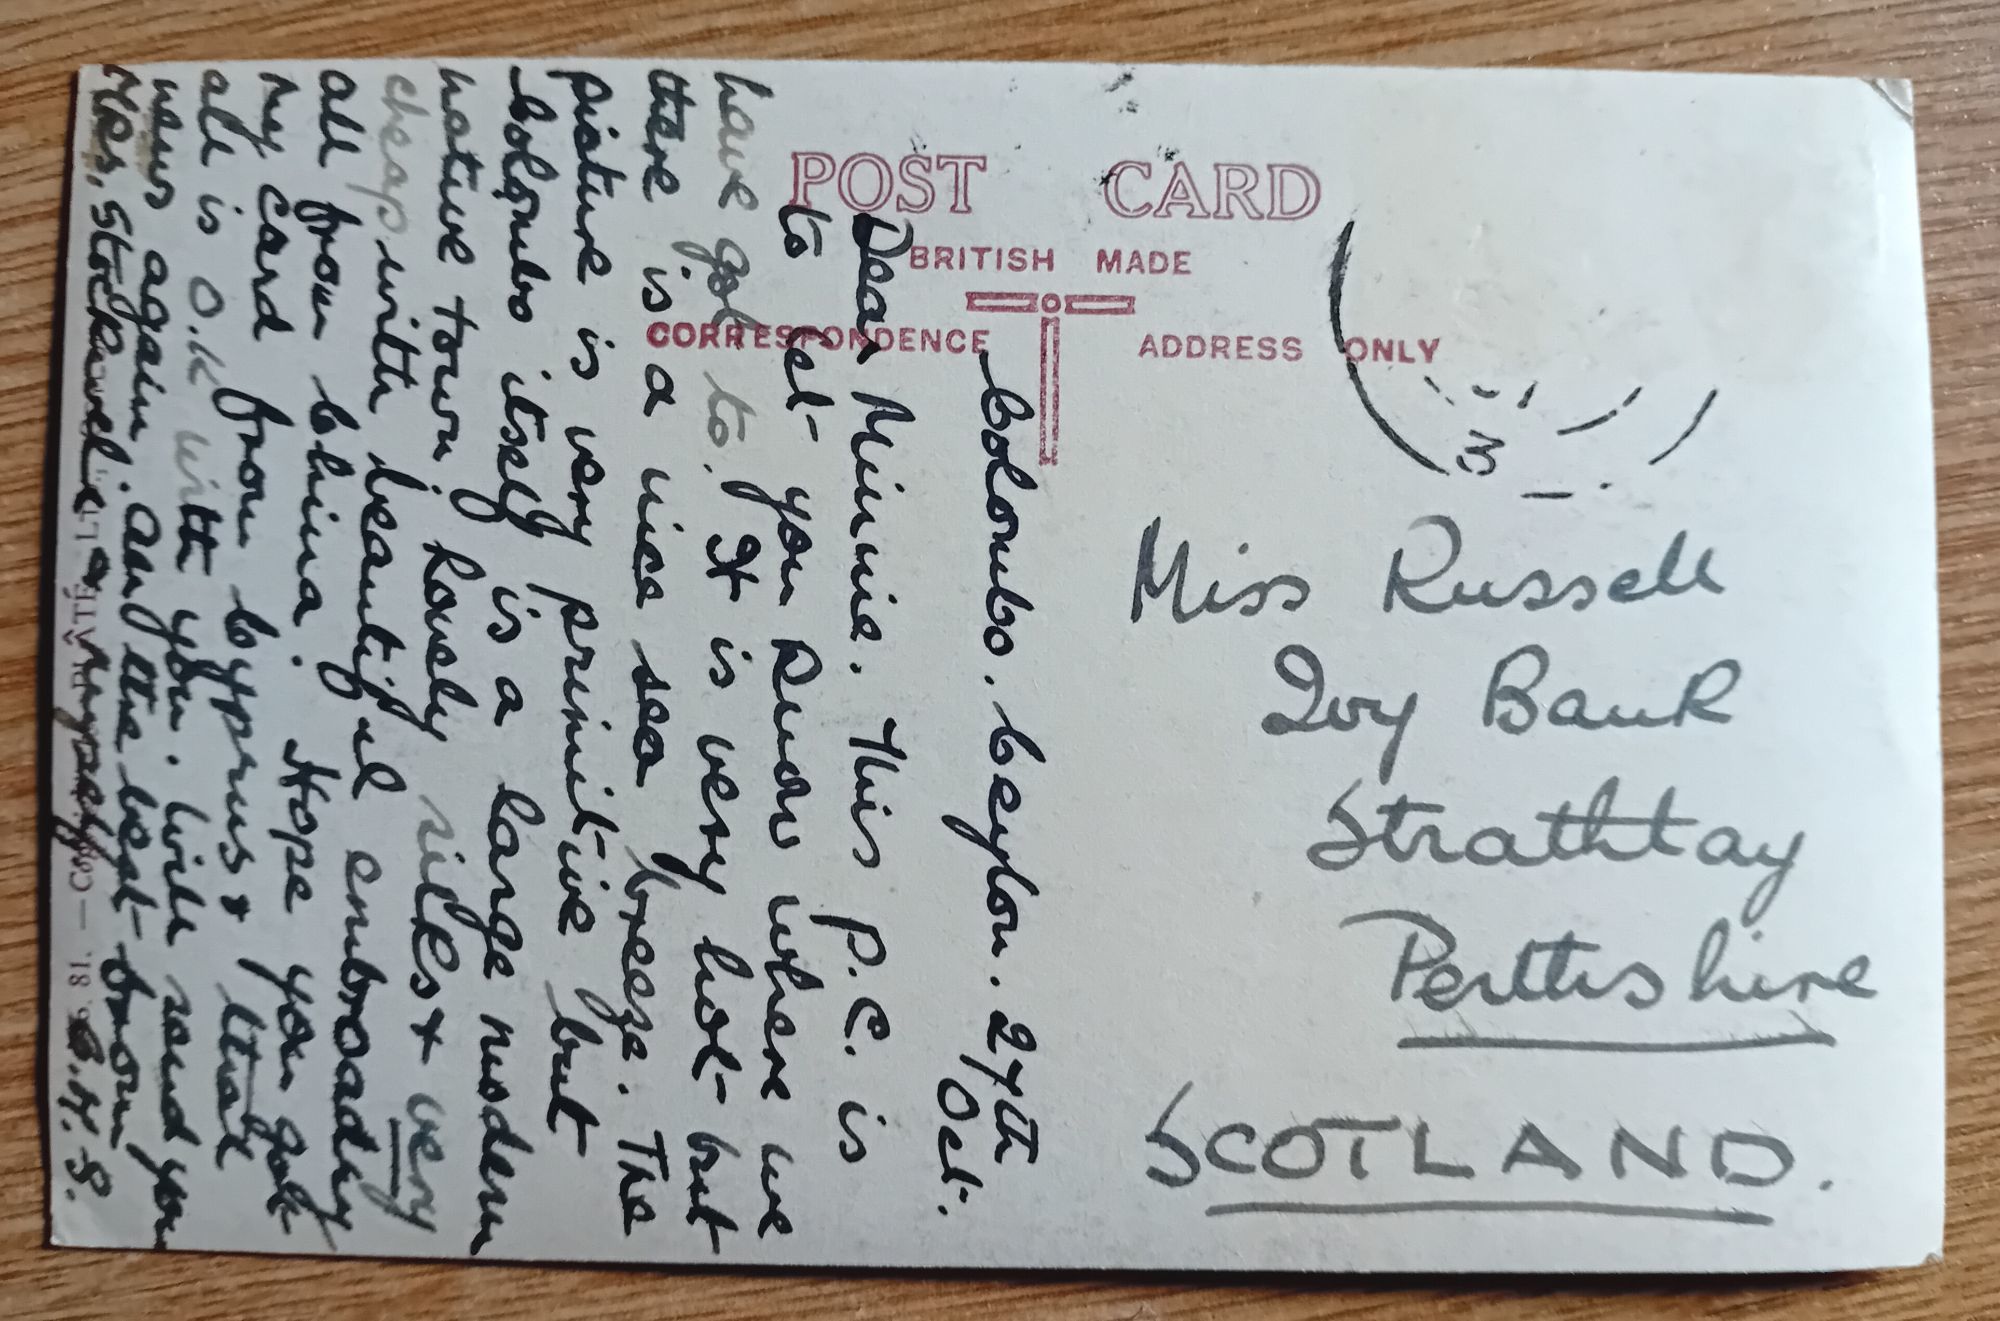 POST CARD
BRITISH MADE
CORRESPONDENCE ADDRESS ONLY
Colombo. Ceylon. 27th
Oct.
Dear Minnie. This P.C. is
to let you know where we
have got to. It is very hot but
there is a nice sea breeze. The
picture is very primitive but
Colombo itself is a large modern
native town. Lovely silks & very
cheap with beautiful embroadry
all from China. Hope you got
my card from Cyprus & that
all is O.K with you. Will send you
news again. All the best from
Mrs. Stockwell & C.H.S.
Miss Russell
Ivy Bank
Strathtay
Perthshire
SCOTLAND.